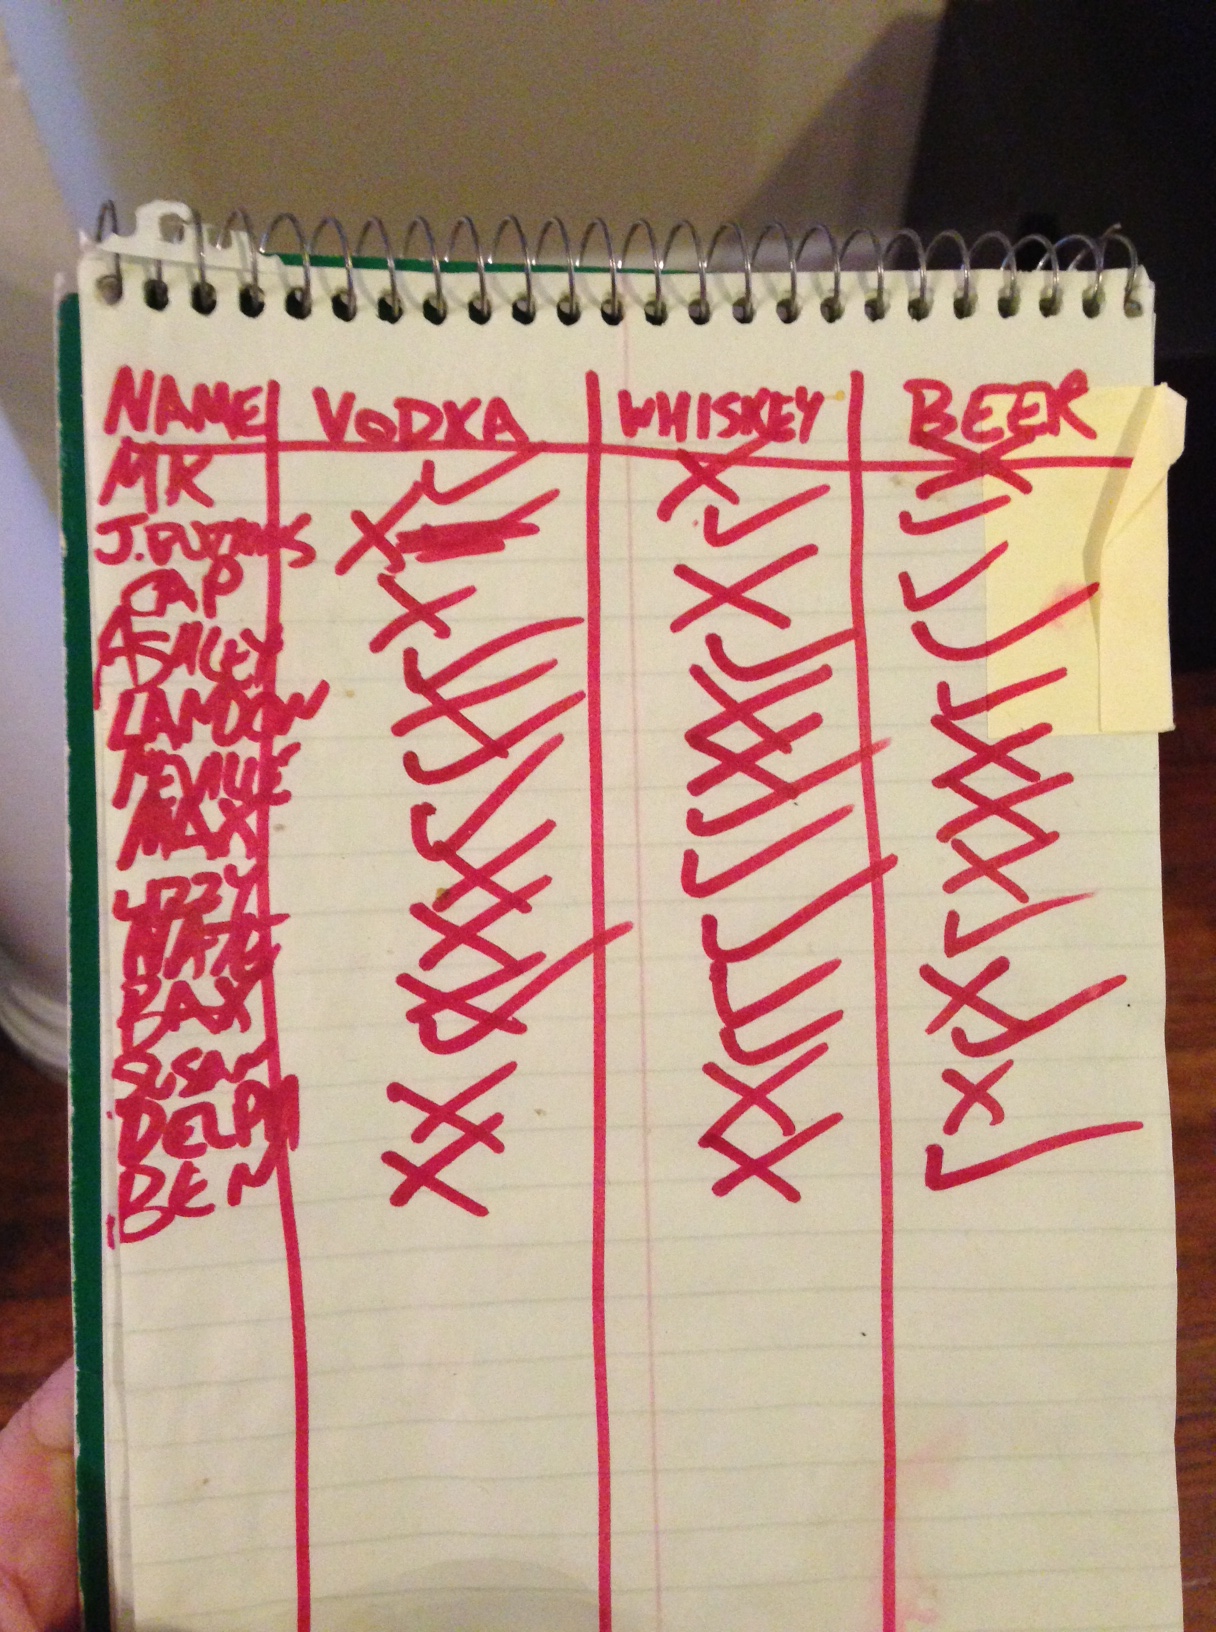 NAME VODKA WHISKEY BEER
MK ✓ X X
J. X ✓ ✓
CAP X X ✓
ASHLEY ✓ ✓ ✓
LANDON X X ✓
NEVILLE ✓ X X
MAX ✓ ✓ X
LIZZY X ✓ X
NATE X ✓ ✓
BAX X ✓ X
SUSAN ✓ ✓ ✓
DELPH X X X
BEN X X ✓